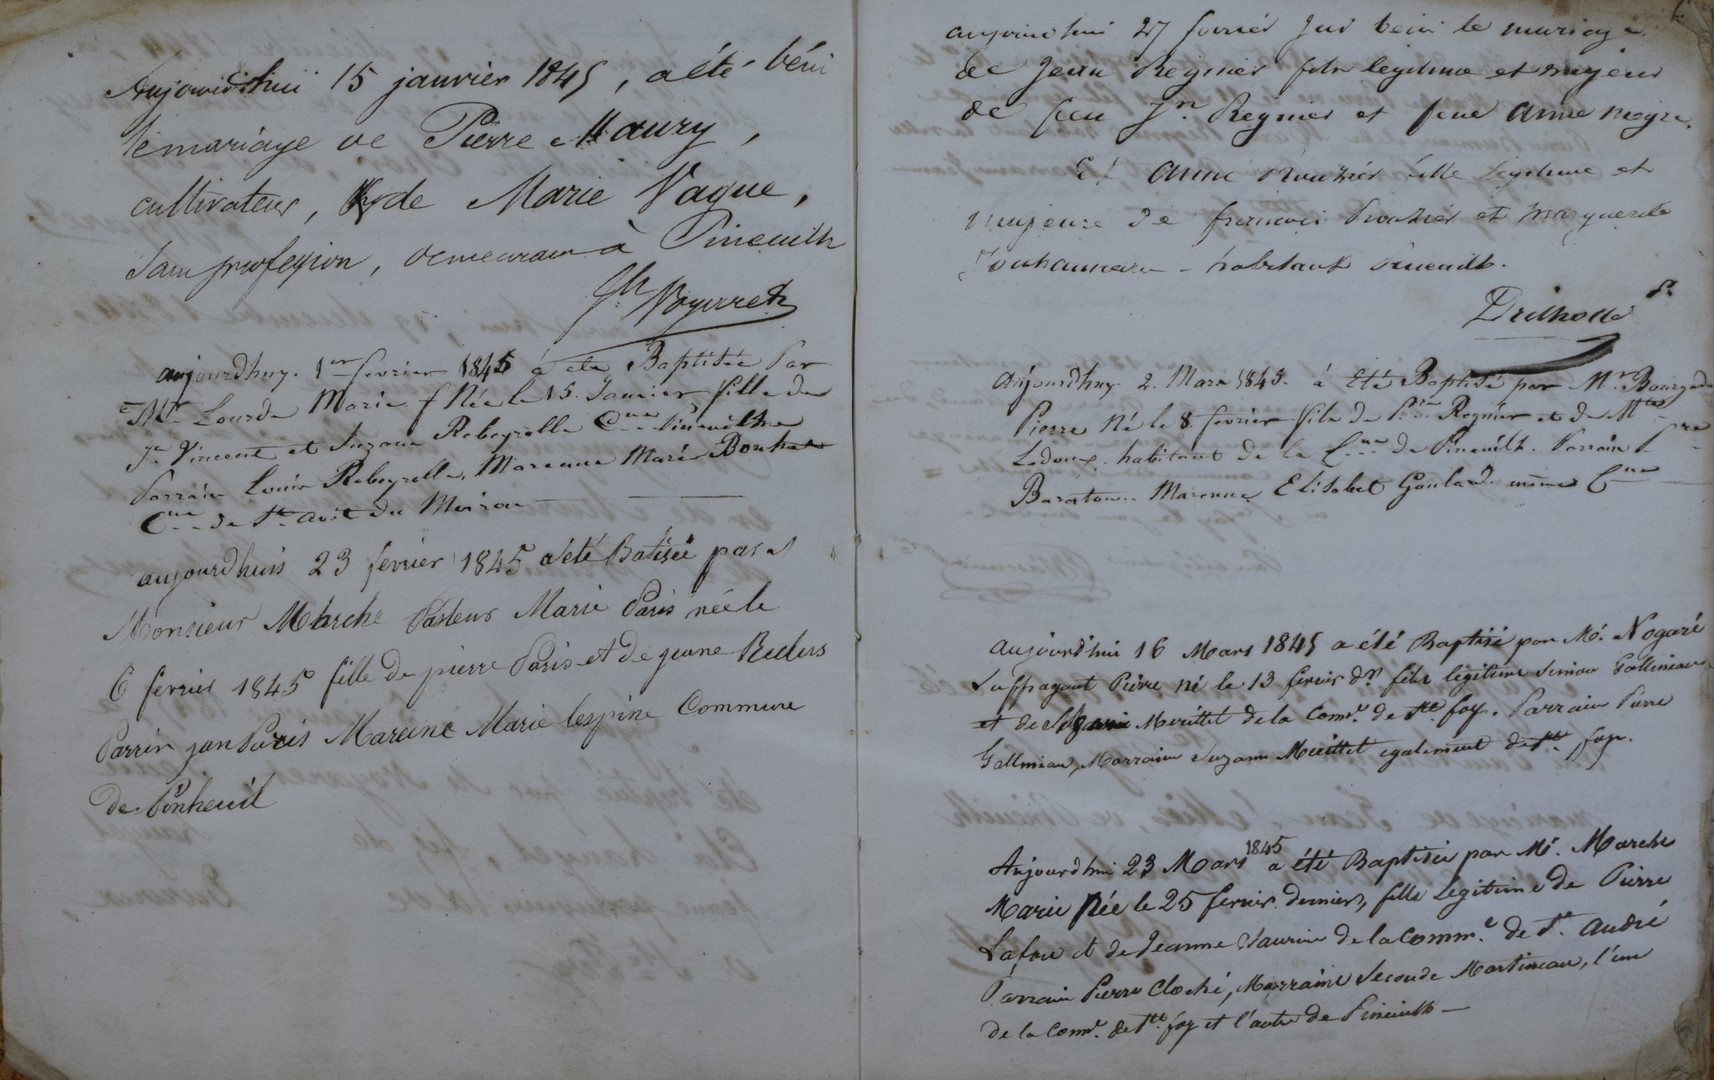 Aujourd'hui 15 janvier 1845, a été béni
le mariage de Pierre Maury,
cultivateur, & de Marie Vague,
sans profession, demeurant à Pineuilh
aujourdhuy. 1er fevrier 1845 á ete Baptisée Par
Mr Lourde Marie f Née le 15. Janvier fille de
Jn Vincent et Suzane Rebeyrolle Cne Pineuilh
Parrain Louis Rebeyrolle, Marenne Marie
Cne de St avit du Moiron
aujourdhuis 23 fevrier 1845 a été Batisée par
Monsieur Marche Pasteur Marie Paris née le
6 fevrier 1845 fille de pierre Paris et de jeane
Parrin jan Paris Marene Marie lespine Commune
de Pinheuil
aujourd'hui 27 fevrier fut beni le mariage
de Jean Reynier fils legitime et majeur
de feu Jn Reynier et feue anne
Et anne fille legitime et
majeure de francois et marguerite
habitant Pineuilh.
Aujourdhuy. 2. Mars 1845. á été Baptisé par Mr.
Pierre Né le 8 fevrier fils de Pre Reynier et de Mie
Ledoux. habitant de la Cne de Pineuilh. Parrain Pre
Marenne Elisabet Goulard même Cne
Aujourd'hui 16 Mars 1845 a été Baptisé par Mr. Nogaré
Suffragant Pierre né le 13 fevrier dr. fils légitime Simon Gallineau
et de Meuillet de la Comne. de Ste foy. Parrain Pierre
Gallineau, Marraine Suzanne Meuillet egalement de Ste foy.
Aujourdhui 23 Mars 1845 a été Baptisée par Mr. Marche
Marie Née le 25 fevrier dernier, fille legitime de Pierre
Lafon et de Jeanne Saurin de la Comme. de St. André
Parrain Pierre Cloché, Marraine Seconde Martineau, l'un
de la Comme. de Ste. foy et l'autre de Pineuilh